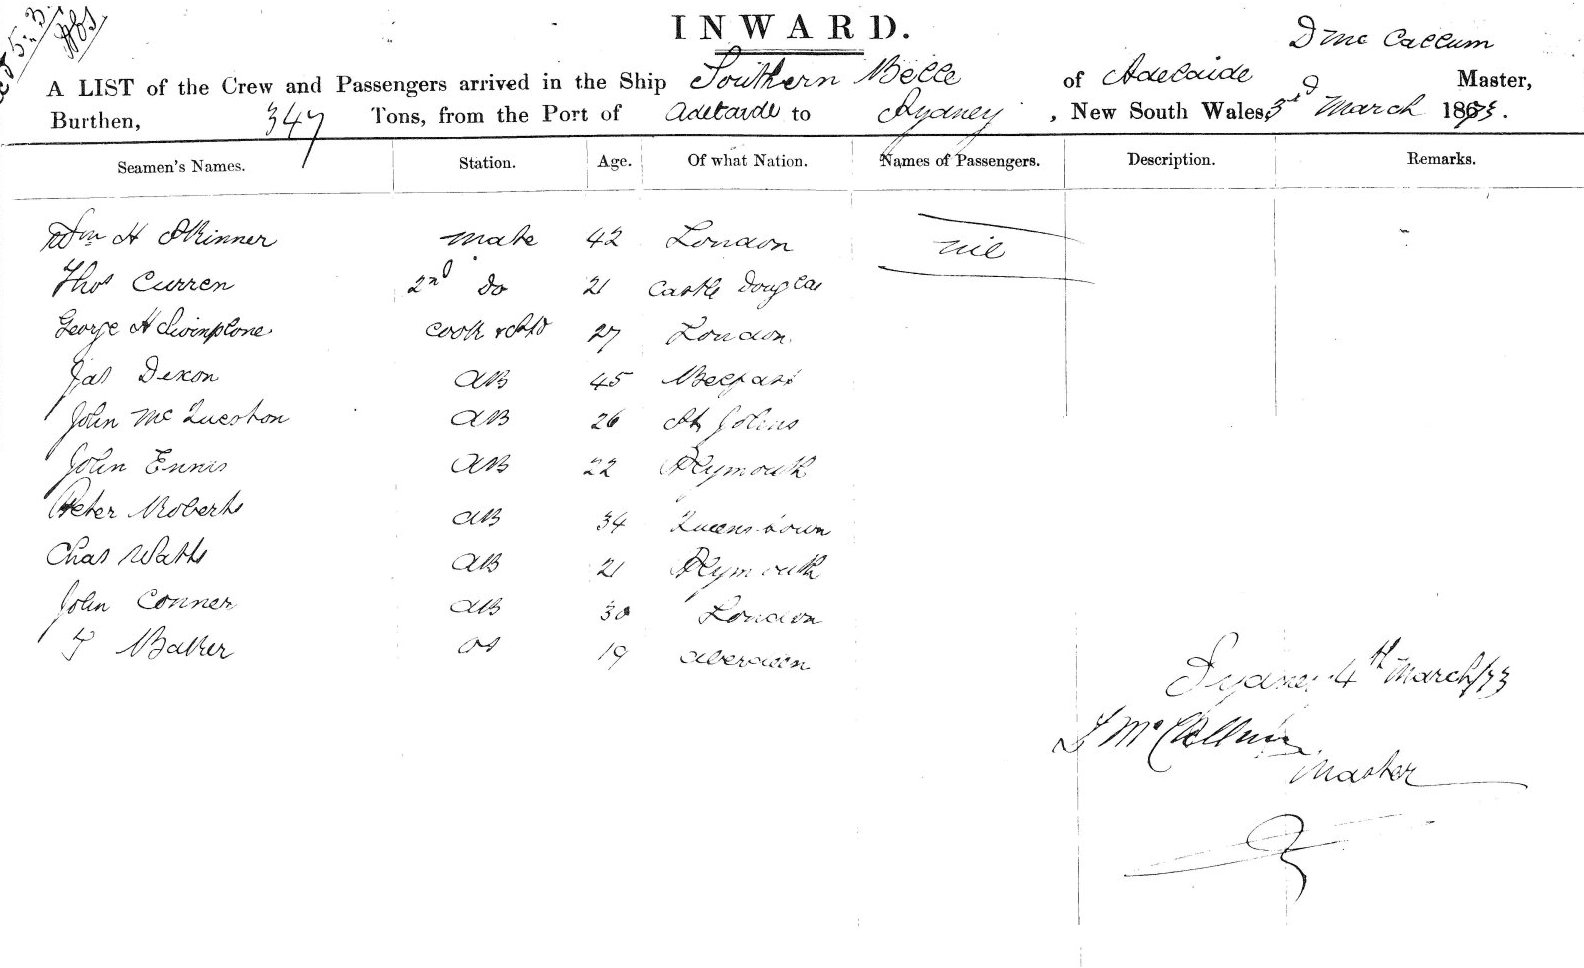 INWARD.
D Mc Callum
A LIST of the Crew and Passengers arrived in the Ship Southern Belle of Adelaide Master,
Burthen, 347 Tons, from the Port of Adelaide to Sydney, New South Wales, 3rd March 1873.
Seamen's Names. Station. Age. Of what Nation. Names of Passengers. Description. Remarks.
Wm H Skinner mate 42 London nil
Thos Curren 2nd Do 21 Castle Douglas
George H cook & std 27 London
Jas Dixon AB 45 Belfast
John McQuestion AB 26 St Johns
John Ennis AB 22 Plymouth
Peter Roberts AB 34 Queenstown
Chas Watts AB 21 Plymouth
John Conner AB 30 London
T Baker OS 19 Aberdeen
Sydney 4th March/73
D McCallum
Master